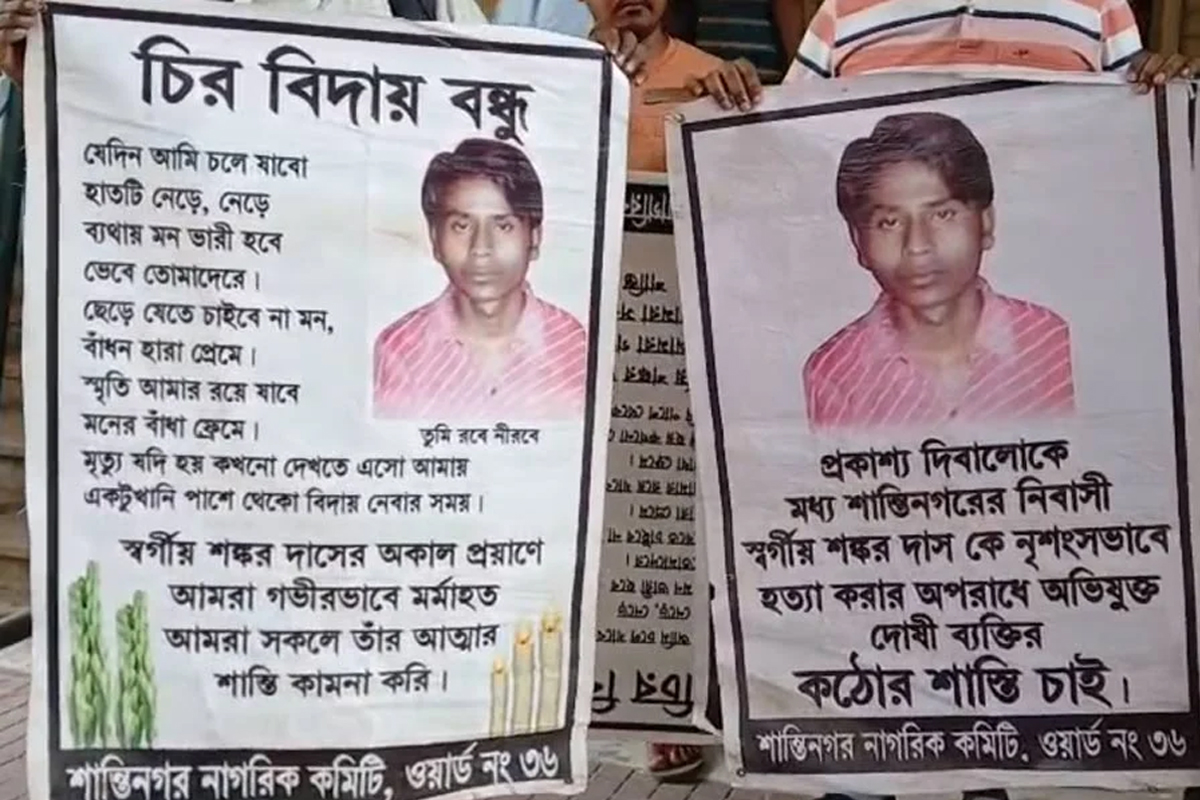 চির বিদায় বন্ধু
যেদিন আমি চলে যাবো
হাতটি নেড়ে, নেড়ে
ব্যথায় মন ভারী হবে
ভেবে তোমাদেরে।
ছেড়ে যেতে চাইবে না মন,
বাঁধন হারা প্রেমে।
স্মৃতি আমার রয়ে যাবে
মনের বাঁধা ফ্রেমে।
তুমি রবে নীরবে
মৃত্যু যদি হয় কখনো দেখতে এসো আমায়
একটুখানি পাশে থেকো বিদায় নেবার সময়।
স্বর্গীয় শঙ্কর দাসের অকাল প্রয়াণে
আমরা গভীরভাবে মর্মাহত
আমরা সকলে তাঁর আত্মার
শান্তি কামনা করি।
শান্তিনগর নাগরিক কমিটি, ওয়ার্ড নং ৩৬
প্রকাশ্য দিবালোকে
মধ্য শান্তিনগরের নিবাসী
স্বর্গীয় শঙ্কর দাস কে নৃশংসভাবে
হত্যা করার অপরাধে অভিযুক্ত
দোষী ব্যক্তির
কঠোর শাস্তি চাই।
শান্তিনগর নাগরিক কমিটি, ওয়ার্ড নং ৩৬